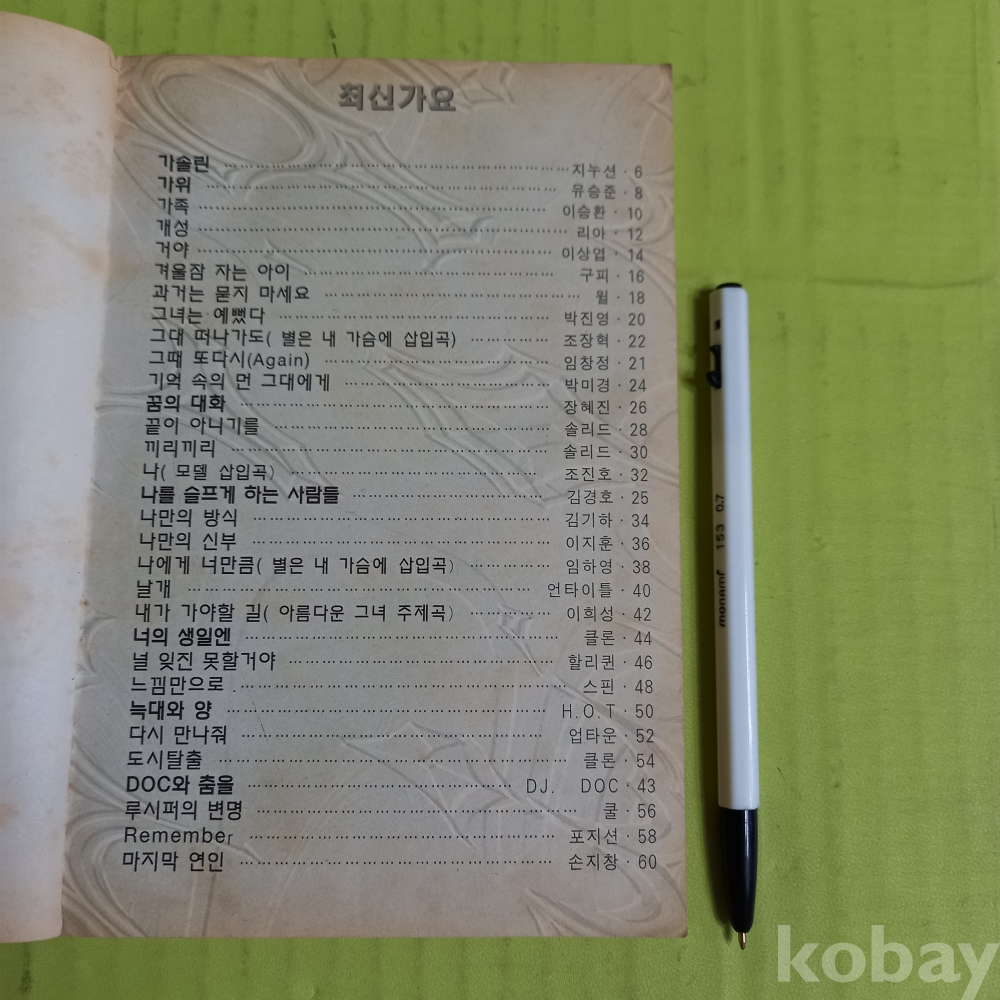 최신가요
가솔린 ························ 지누션 · 6
가위 ························ 유승준 · 8
가족 ························ 이승환 · 10
개성 ························ 리아 · 12
거야 ························ 이상엽 · 14
겨울잠 자는 아이 ························ 구피 · 16
과거는 묻지 마세요 ························ 윌 · 18
그녀는 예뻤다 ························ 박진영 · 20
그대 떠나가도( 별은 내 가슴에 삽입곡) ············ 조장혁 · 22
그때 또다시(Again) ························ 임창정 · 21
기억 속의 먼 그대에게 ························ 박미경 · 24
꿈의 대화 ························ 장혜진 · 26
끝이 아니기를 ························ 솔리드 · 28
끼리끼리 ························ 솔리드 · 30
나( 모델 삽입곡) ························ 조진호 · 32
나를 슬프게 하는 사람들 ························ 김경호 · 25
나만의 방식 ························ 김기하 · 34
나만의 신부 ························ 이지훈 · 36
나에게 너만큼( 별은 내 가슴에 삽입곡) ············ 임하영 · 38
날개 ························ 언타이틀 · 40
내가 가야할 길( 아름다운 그녀 주제곡) ············ 이희성 · 42
너의 생일엔 ························ 클론 · 44
널 잊진 못할거야 ························ 할리퀸 · 46
느낌만으로 ························ 스핀 · 48
늑대와 양 ························ H.O.T · 50
다시 만나줘 ························ 업타운 · 52
도시탈출 ························ 클론 · 54
DOC와 춤을 ························ DJ. DOC · 43
루시퍼의 변명 ························ 쿨 · 56
Remember ························ 포지션 · 58
마지막 연인 ························ 손지창 · 60
monami 153 0.7
kobay